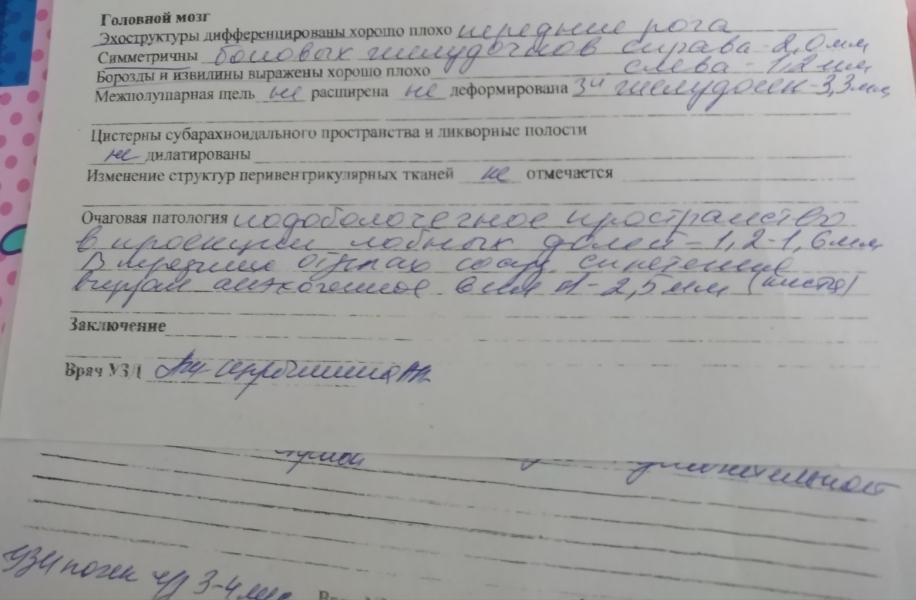 Головной мозг
Эхоструктуры дифференцированы хорошо плохо передние рога
Симметричны боковых желудочков справа - 2,0 мм
Борозды и извилины выражены хорошо плохо слева - 1,2 мм
Межполушарная щель не расширена не деформирована 3й желудочек - 3,3 мм
Цистерны субарахноидального пространства и ликворные полости
не дилатированы
Изменение структур перивентрикулярных тканей не отмечается
Очаговая патология подоболочечное пространство
в проекции лобных долей - 1,2-1,6 мм
В средних отделах сосуд. сплетение
анэхогенное вкл d - 2,5 мм (киста)
Заключение
Врач УЗД
УЗИ почек ч/з 3-4 мес